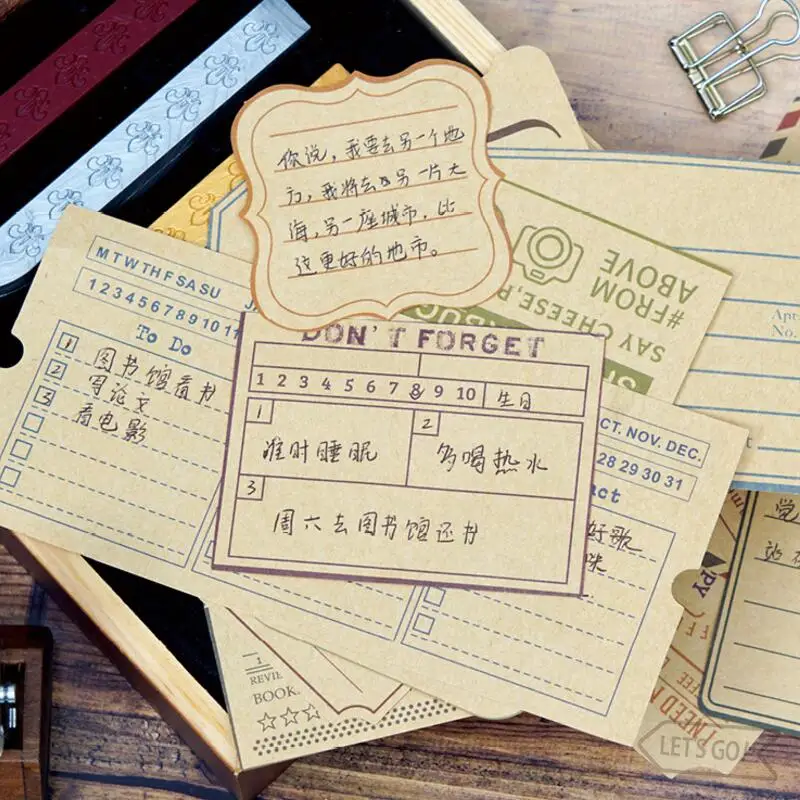 你说,我要去另一个地
方,我将去另一片大
海,另一座城市,比
这更好的地市。
#FROM
ABOVE
SAY CHEESE,
MTWTHFSASU
1 2 3 4 5 6 7 8 9 10 11
To Do
1 图书馆看书
2 写论文
3 看电影
DON'T FORGET
1 2 3 4 5 6 7 8 9 10 生日
1 准时睡眠
2 多喝热水
3 周六去图书馆还书
CT. NOV. DEC.
28 29 30 31
好歌
No.
觉
1
REVIE
BOOK.
I NEED
LET'S GO